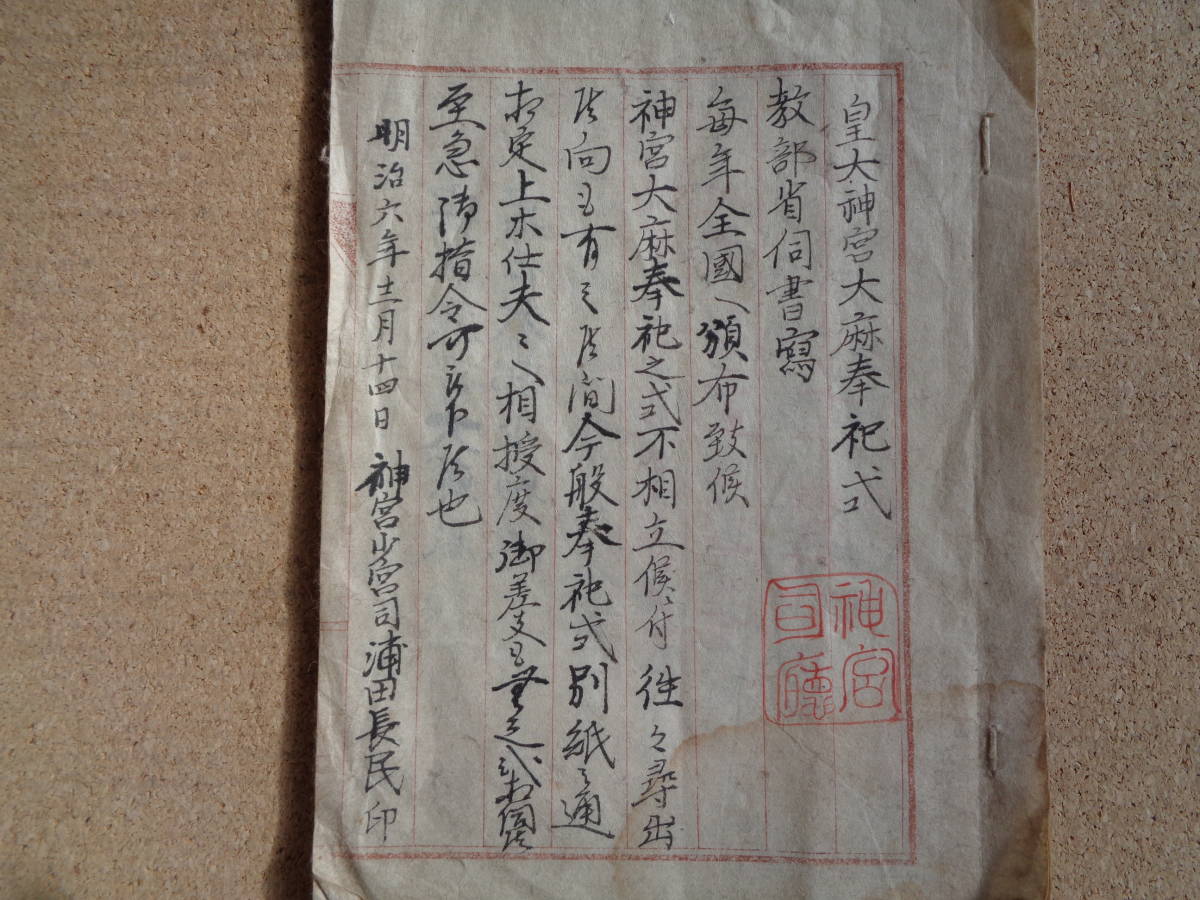 皇大神宮大麻奉祀式
教部省伺書寫
毎年全國へ頒布致候
神宮大麻奉祀之式不相立候ニ付往々尋出
候向も有之候間今般奉祀式別紙之通
相定上木仕夫々へ相授度御差支も無之哉相伺候
至急御指令可被下候也
明治六年十二月十四日 神宮少宮司浦田長民印
神宮司廳